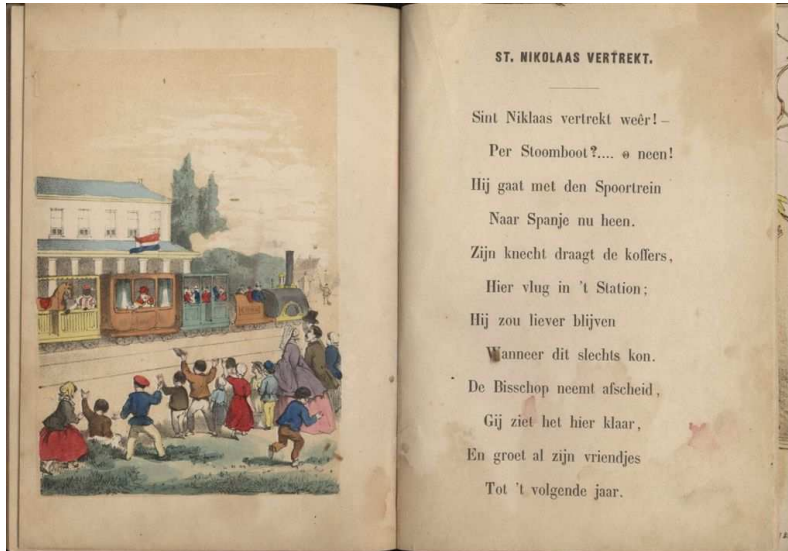 ST. NIKOLAAS VERTREKT.
Sint Niklaas vertrekt weêr! –
Per Stoomboot?.... o neen!
Hij gaat met den Spoortrein
Naar Spanje nu heen.
Zijn knecht draagt de koffers,
Hier vlug in 't Station;
Hij zou liever blijven
Wanneer dit slechts kon.
De Bisschop neemt afscheid,
Gij ziet het hier klaar,
En groet al zijn vriendjes
Tot 't volgende jaar.